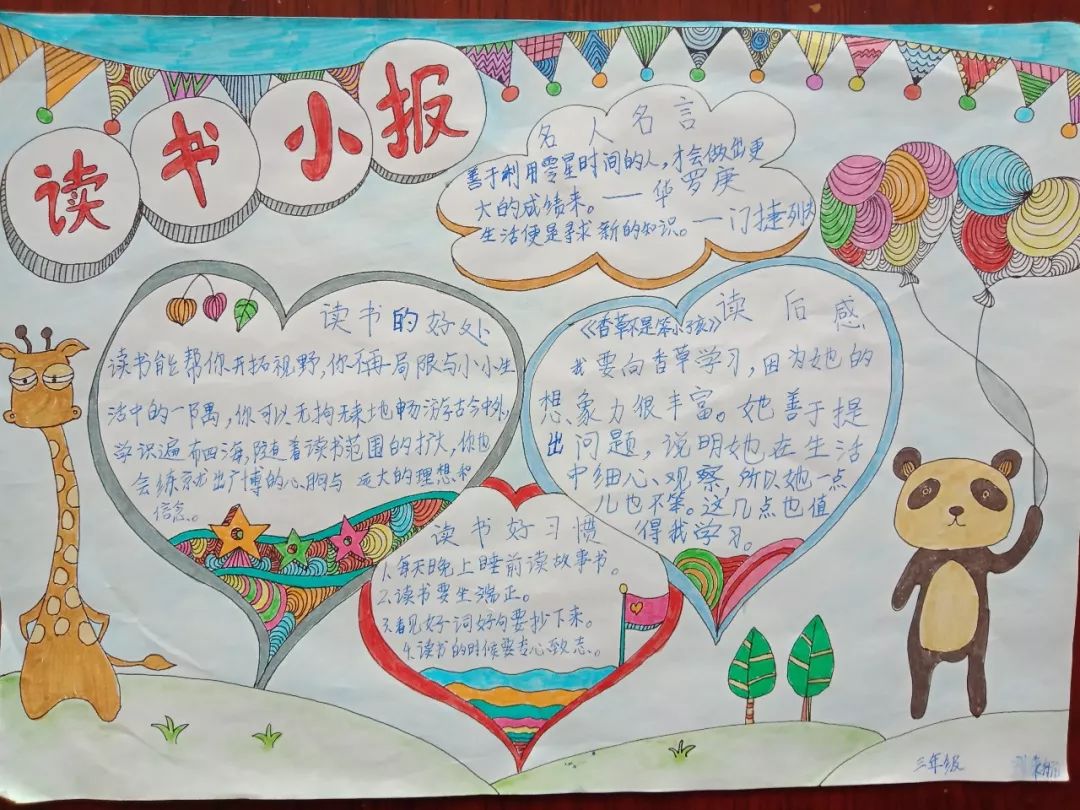 读书小报
名人名言
善于利用零星时间的人,才会做出更
大的成绩来。——华罗庚
生活便是寻求新的知识。—门捷列夫
读书的好处
读书能帮你开拓视野,你不再局限与小小生
活中的一隅,你可以无拘无束地畅游古今中外,
学识遍布四海,随着读书范围的扩大,你也
会练就出广博的心胸与远大的理想和
信念。
读后感
《香草不是笨小孩》
我要向香草学习,因为她的
想象力很丰富。她善于提
出问题,说明她在生活
中细心、观察,所以她一点
儿也不笨。这几点也值
得我学习。
读书好习惯
1.每天晚上睡前读故事书。
2.读书要坐端正。
3.看见好词好句要抄下来。
4.读书的时候要专心致志。
三年级